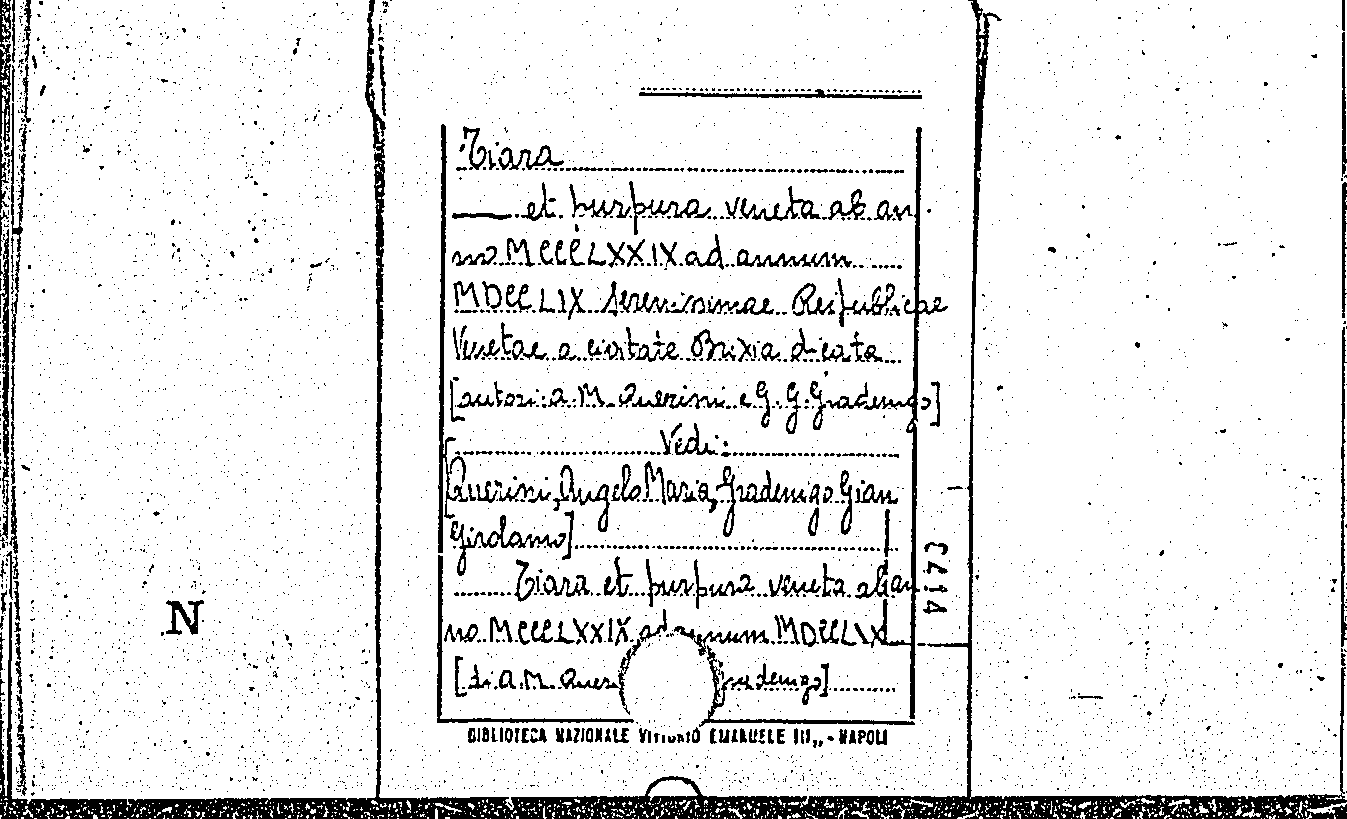 Tiara
— et purpura veneta ab an
no MCCCLXXIX ad annum
MDCCLIX Serenissimae Reipublicae
Venetae a civitate Brixia dicata
[autori: A. M. Querini e G. G. Gradenigo]
Vedi:
[Querini, Angelo Maria, Gradenigo Gian
Girolamo]
Tiara et purpura veneta ab an
no MCCCLXXIX ad annum MDCCLIX
[di A. M. Quer
BIBLIOTECA NAZIONALE VITTORIO EMANUELE III,, - NAPOLI
N